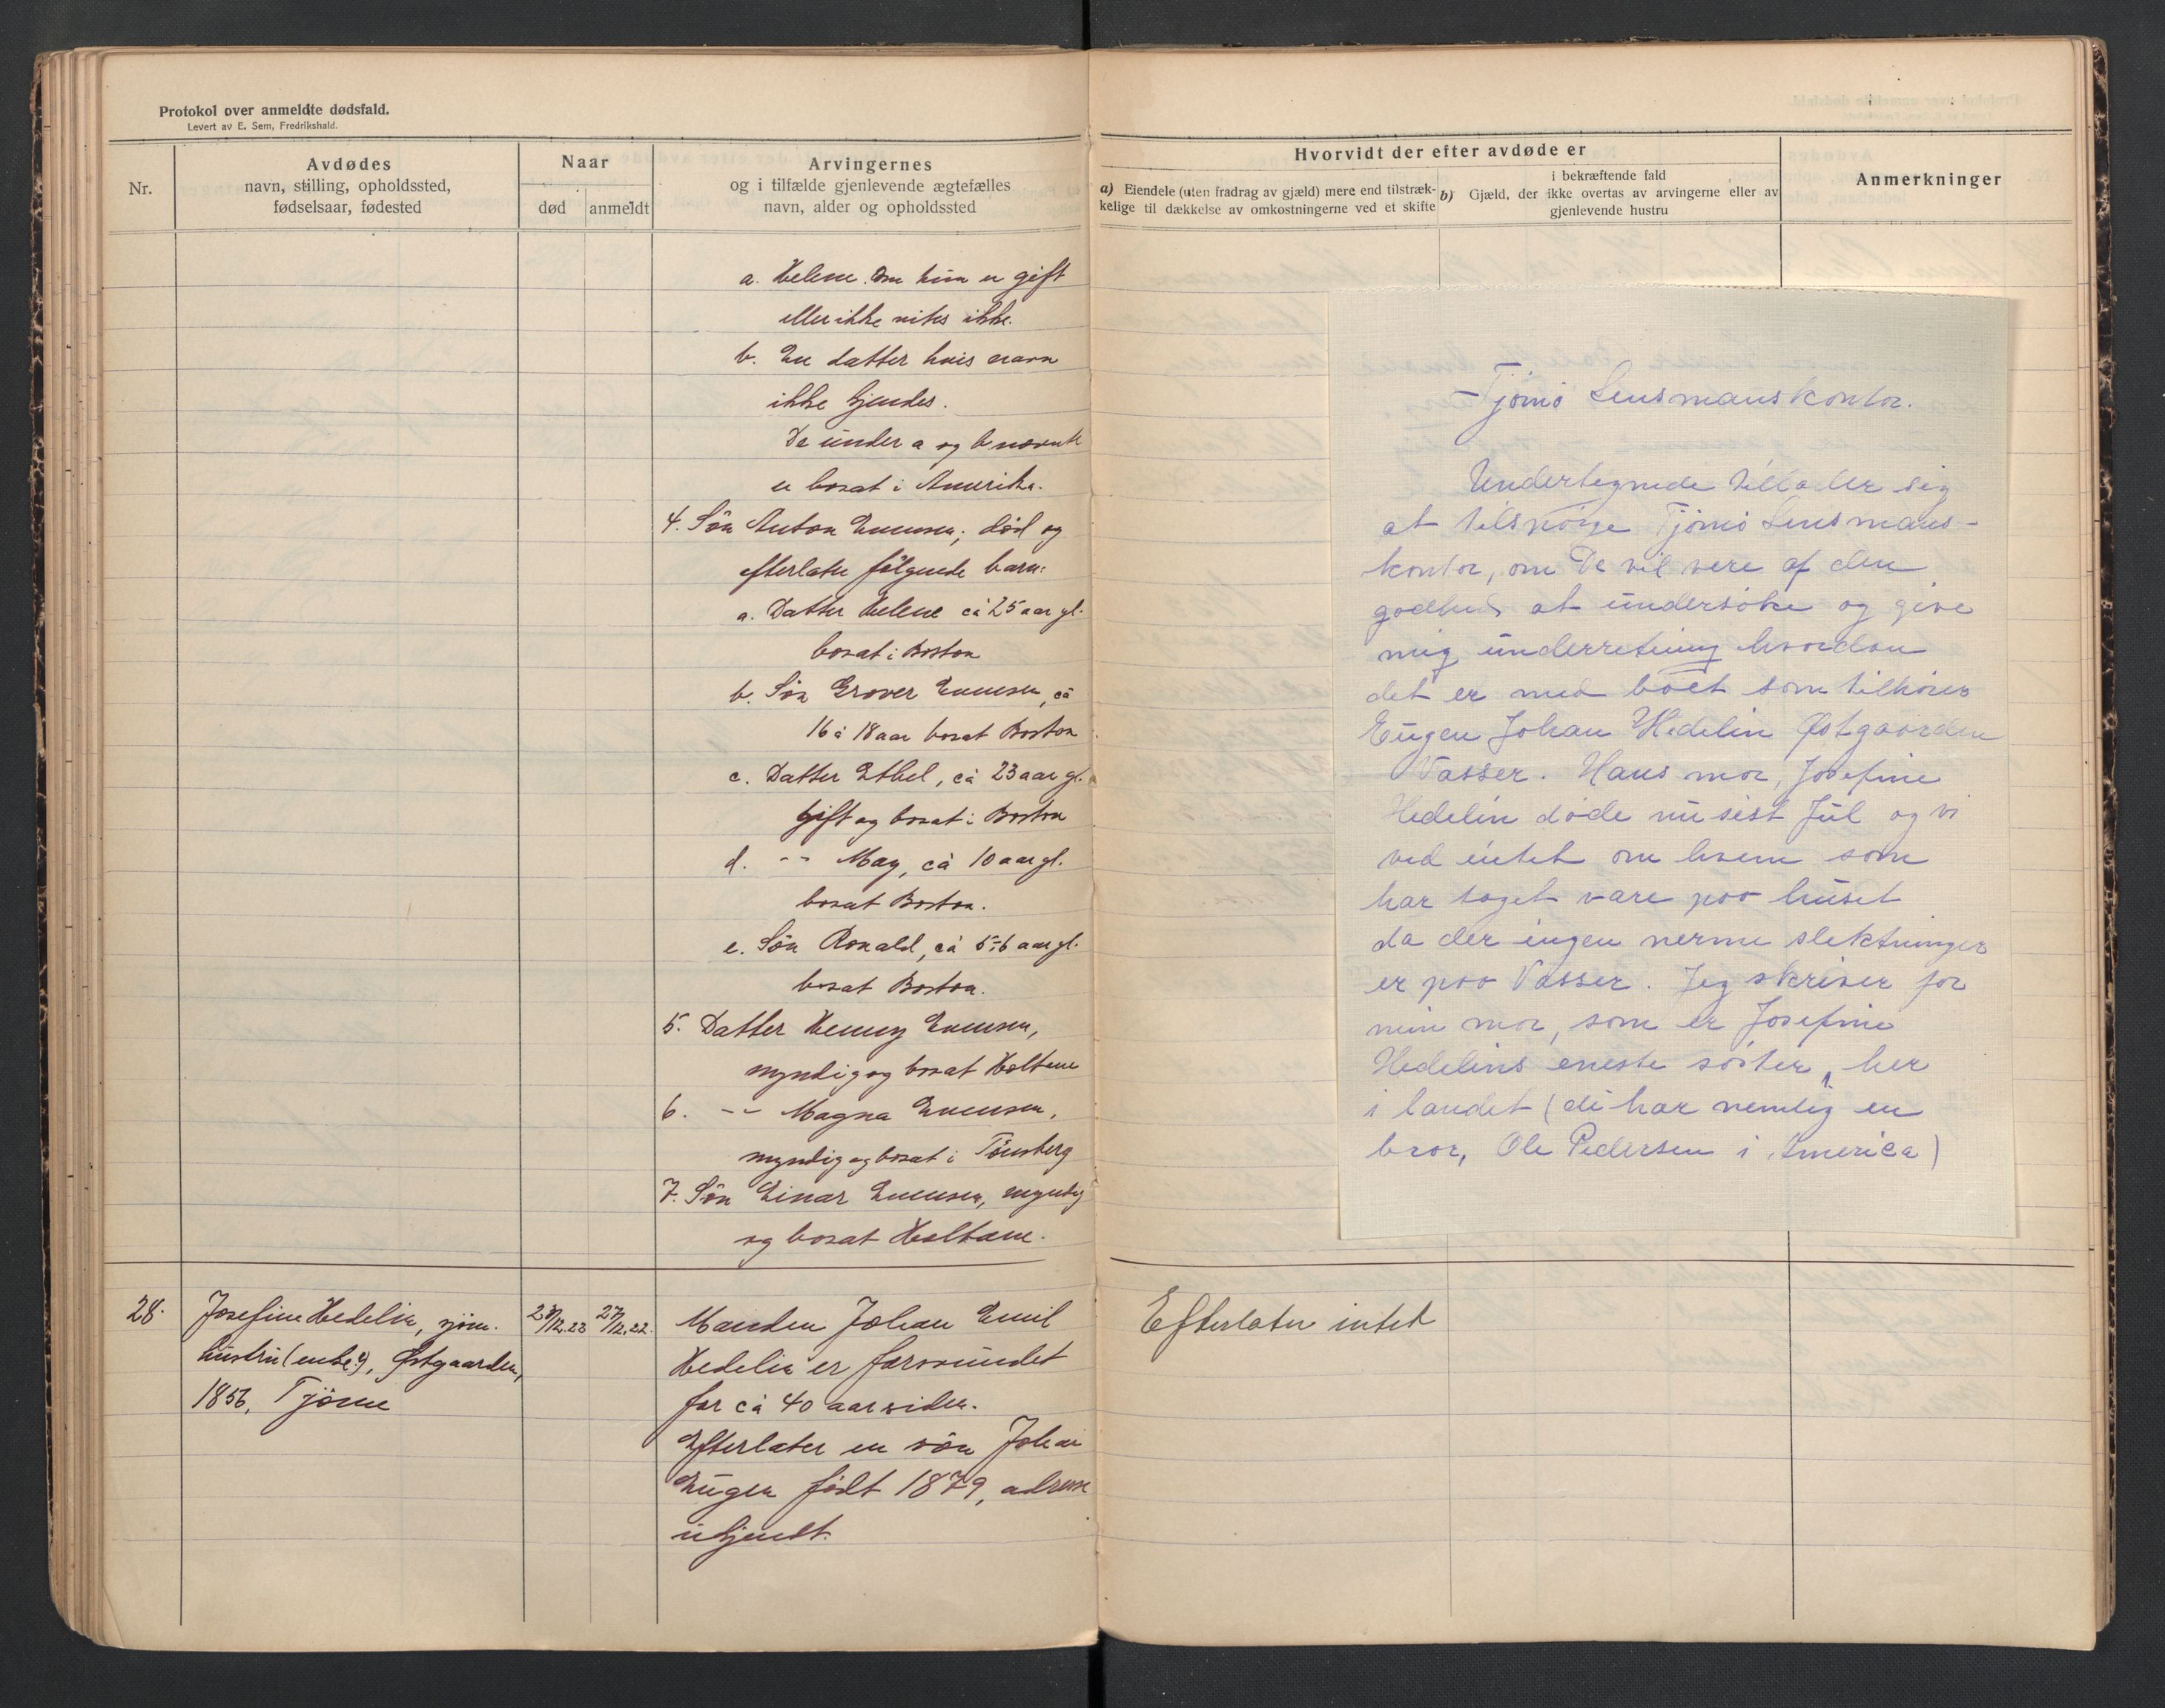 Protokol over anmeldte dødsfald.
Levert av E. Sem, Fredrikshald.
Nr.
Avdødes
navn, stilling, opholdssted,
fødselsaar, fødested
Naar
død
anmeldt
Arvingernes
og i tilfælde gjenlevende ægtefælles
navn, alder og opholdssted
a. Helene. Om hun er gift
eller ikke vites ikke.
b. En datter hvis navn
ikke kjendes.
De under a og b nævnte
er bosat i Amerika.
4. Søn Anton Evensen; død og
efterlater følgende barn:
a. Datter Helene cà 25 aar gl.
bosat i Boston
b. Søn Grover Evensen, cà
16 à 18 aar bosat Boston
c. Datter Ethel, cà 23 aar gl.
gift og bosat i Boston
d. -"- May, cà 10 aar gl.
bosat Boston.
e. Søn Ronald, cà 5-6 aar gl.
bosat Boston.
5. Datter Henny Evensen,
myndig og bosat Holtane
6. -"- Magna Evensen,
myndig og bosat i Tønsberg
7. Søn Einar Evensen, myndig
og bosat Holtane.
28. Josefine Hedelin, sjøm.
hustru (enke?), Østgaarden,
1856, Tjøme
27/12.22.
Manden Johan Emil
Hedelin er forsvundet
for cà 40 aar siden.
Efterlater en søn Johan
Eugen født 1879, adresse
ukjendt.
Hvorvidt der efter avdøde er
a) Eiendele (uten fradrag av gjæld) mere end tilstræk-
kelige til dækkelse av omkostningerne ved et skifte
i bekræftende fald
b) Gjæld, der ikke overtas av arvingerne eller av
gjenlevende hustru
Anmerkninger
Tjømø Lensmanskontor.
Undertegnede tillader sig
at tilspørge Tjømø Lensmans-
kontor, om De vil vere af den
godhed at undersøke og give
mig underretning hvordan
det er med boet som tilhører
Eugen Johan Hedelin Østgaarden
Vasser. Hans mor, Josefine
Hedelin døde nu sist Jul og vi
ved intet om hvem som
har taget vare paa huset
da der ingen nerme slektninger
er paa Vasser. Jeg skriver for
min mor, som er Josefine
Hedelins eneste søster, her
i landet (di har nemlig en
bror, Ole Pedersen i America)
Efterlater intet